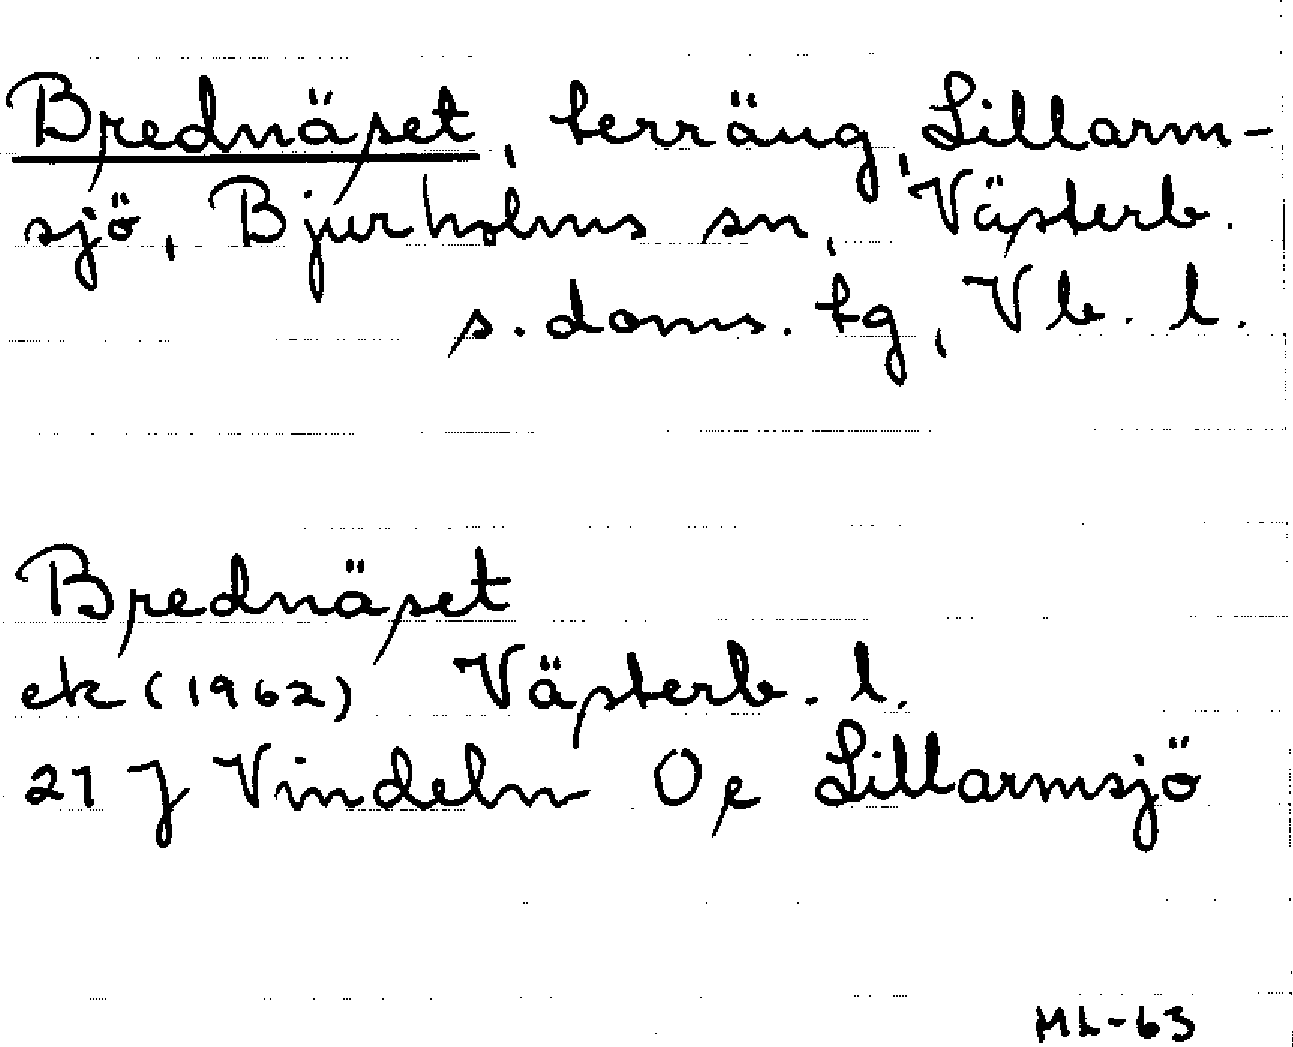 Brednäset, terräng, Lillarm-
sjö, Bjurholms sn, Västerb.
s. doms. tg, Vb. l.
Brednäset
ek (1962) Västerb. l.
21 J Vindeln Oe Lillarmsjö
ML-63